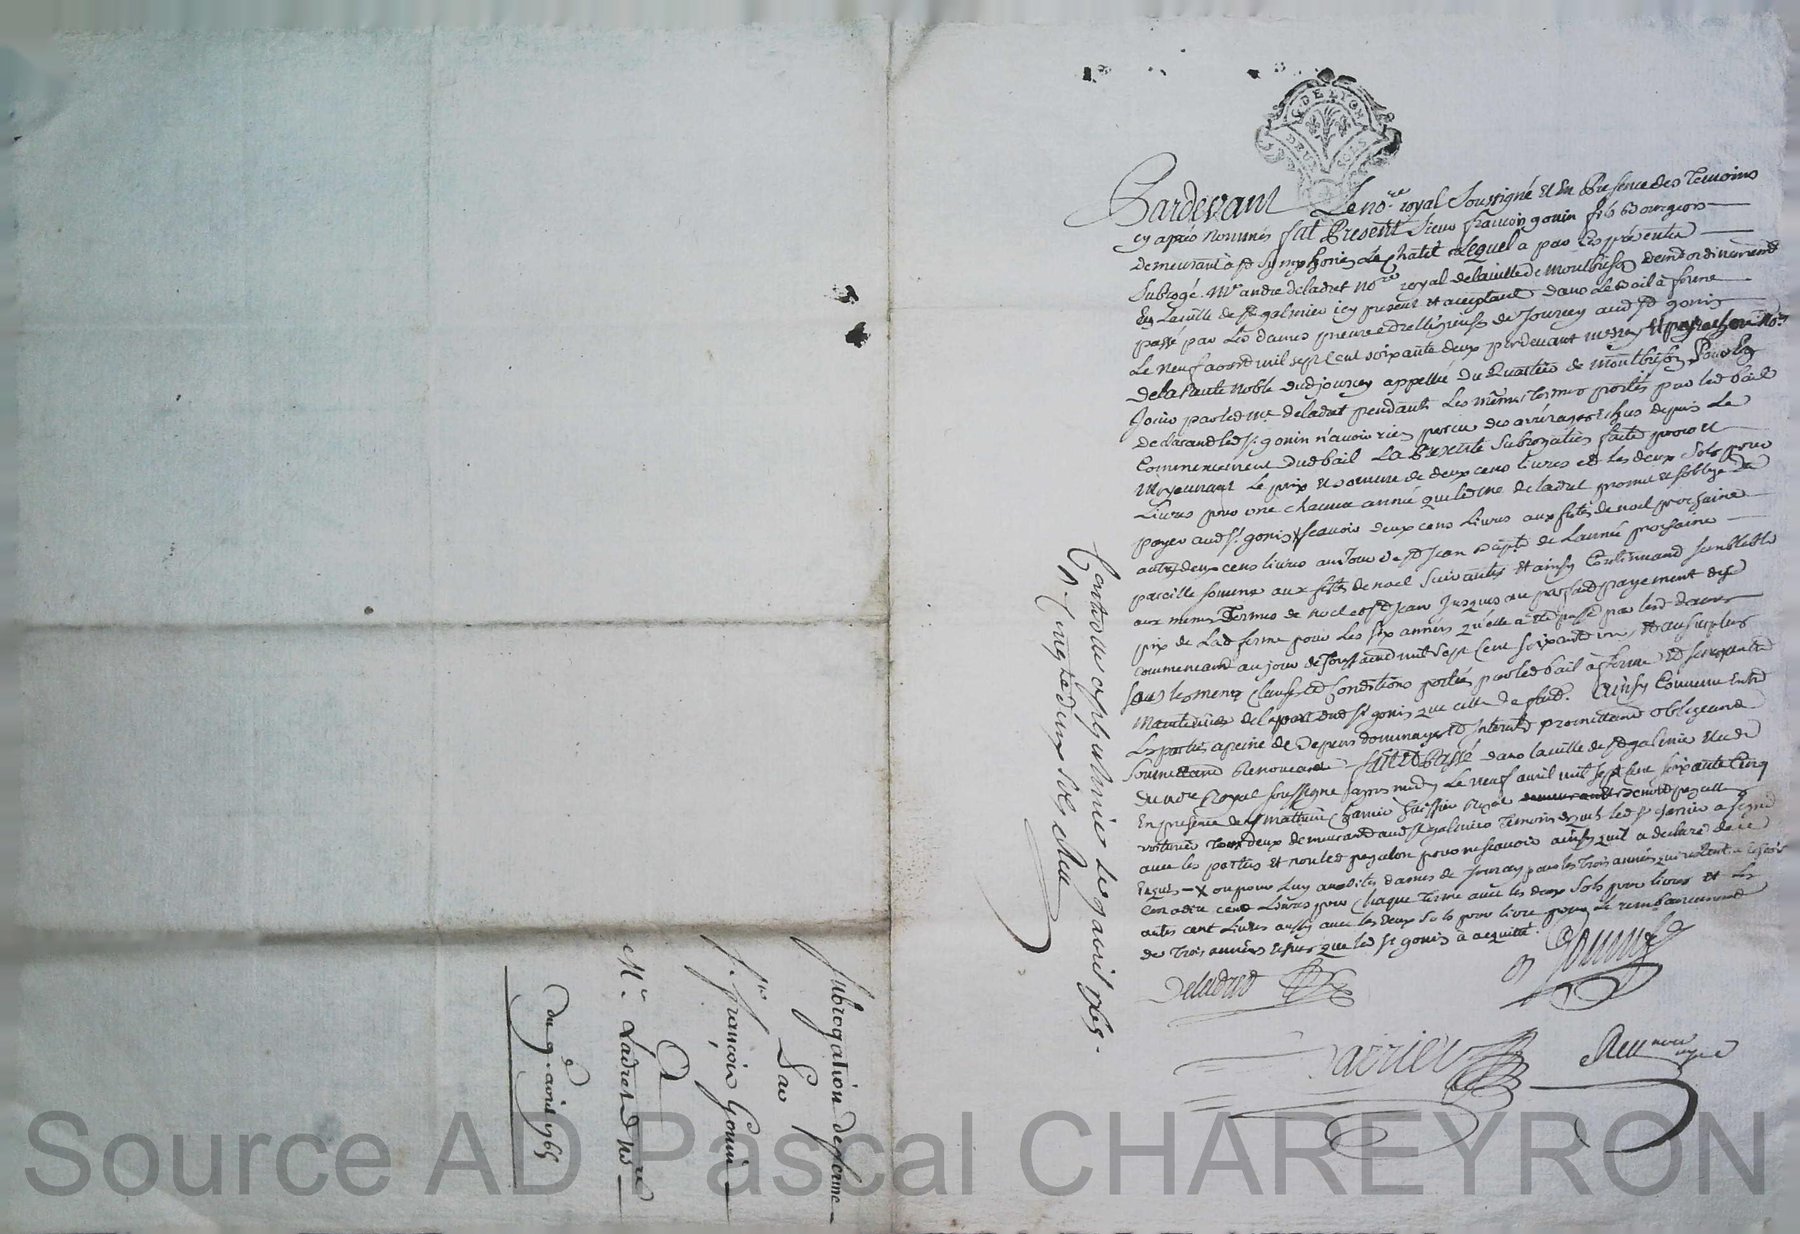 G. DE LYON
DEUX SOLS
Pardevant Le no.re royal Soussigné Et En Presence des Temoins
cy aprés Nommés fut Present Sieur françois gonin fils Bourgeois
demeurant à st Symphorien Le Chatel Lequel a par Ces présentes
Subrogé Me andré deladret No.re royal de la ville de Montbrison demt ordinairement
En La ville de st galmier icy present et acceptant dans Le Bail à ferme
passé par Les dames prieure et relligieuses de Jourcey aud st gonin
Le neuf aoust mil sept Cent soixante deux pardevant
dela Rente Noble dud jourcey appellée du Quartier de Montbrison Pour En
Jouir par led me deladret pendant Les mêmes Termes portés par led bail
declarant led sr. gonin n'avoir rien perçu des arrérages Echus depuis Le
Commencement dud bail La Presente Subrogation faite pour et
Moyennant Le prix et somme de deux cens livres et Les deux Sols pour
Livres pour une chacune année que led me deladret promet et s'oblige de
payer aud sr. gonin sçavoir deux cens Livres aux fêtes de noel prochaine
autres deux cens livres au Jour de st Jean Bapte de L'année prochaine
pareille somme aux fêtes de noel suivantes et ainsy Continuant semblable
aux mêmes Termes de noel et st Jean Jusques au parfait payement du
prix de Lad ferme pour Les six années qu'elle a été passé par lesd dames
commencant au jour de Toussaint mil sept Cent soixante un, et au surplus
sous les mêmes Clauses et Conditions portées par led bail à ferme
Maintenües de la part dud sr. gonin que celle de fait. Ainsy Convenu Entre
Les parties a peine de Depens dommages et Interets promettant obligeant
Soumettant Renonçant fait et Passé dans la ville de st galmier
dud no.re Royal soussigné apres midy Le neuf avril mil sept Cent soixante Cinq
En presence de Mathieu huissier Royal
voiturier Tous deux demeurant aud st galmier Temoins requis led sr. gonin a signé
avec les parties et non led pour ne sçavoir ainsy qu'il a declaré de ce
Enquis - X ou pour Luy auxdites dames de Jourcey pour les trois années qui restent a echoir
C'est a dire cent Livres pour Chaque Terme avec les deux Sols pour livres et Les
autres cent Livres aussy avec les deux Sols pour livre pour Le remboursement
des Trois années Echues que led sr. gonin a acquitté
Deladret
Gonin fs
Contrôlé a st galmier le 9 avril 1765.
Subrogation de ferme
Par
Sr. françois Gonin fils
A
Me. Ladret No.re
du 9e. avril 1765
Source AD Pascal CHAREYRON